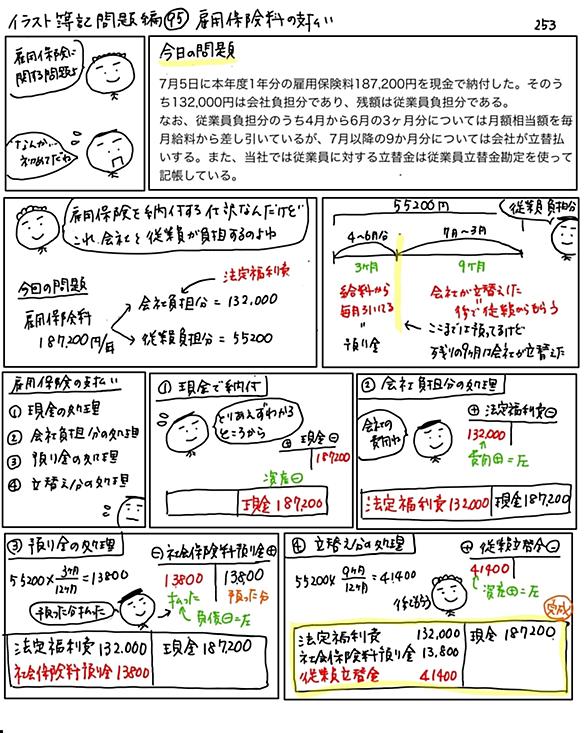 イラスト簿記問題編95 雇用保険料の支払い
253
雇用保険に
関する問題よ
なんか…
初めてだわ
今日の問題
7月5日に本年度1年分の雇用保険料187,200円を現金で納付した。そのう
ち132,000円は会社負担分であり、残額は従業員負担分である。
なお、従業員負担分のうち4月から6月の3ヶ月分については月額相当額を毎
月給料から差し引いているが、7月以降の9か月分については会社が立替払
いする。また、当社では従業員に対する立替金は従業員立替金勘定を使って
記帳している。
雇用保険を納付する仕訳なんだけど
これ、会社と従業員が負担するのよね
今回の問題
雇用保険料
187,200円/年
法定福利費
会社負担分=132,000
従業員負担分=55200
55200円
従業員負担分
4~6月分
7月~3月
3ヶ月
9ヶ月
給料から
毎月引いてる
〃
預り金
会社が立替えた
〃
後で従業員からもらう
ここまでは預ってるけど
残りの9ヶ月は会社が立替えた
雇用保険の支払い
① 現金の処理
② 会社負担分の処理
③ 預り金の処理
④ 立替え分の処理
① 現金で納付
とりあえずわかる
ところから
⊕ 現金 ⊖
187200
資産⊖
現金 187,200
② 会社負担分の処理
会社の
費用ね
⊕ 法定福利費 ⊖
132,000
費用⊕=左
法定福利費 132,000 現金 187,200
③ 預り金の処理
55200×3ヶ月/12ヶ月=13800
預った分払った
⊖ 社会保険料預り金 ⊕
13800 13800
払った 預った分
負債⊖=左
法定福利費 132,000 現金 187,200
社会保険料預り金 13800
④ 立替え分の処理
55200×9ヶ月/12ヶ月=41400
後でもらう
⊕ 従業員立替金 ⊖
41400
資産⊕=左
完成
法定福利費 132,000 現金 187,200
社会保険料預り金 13,800
従業員立替金 41400